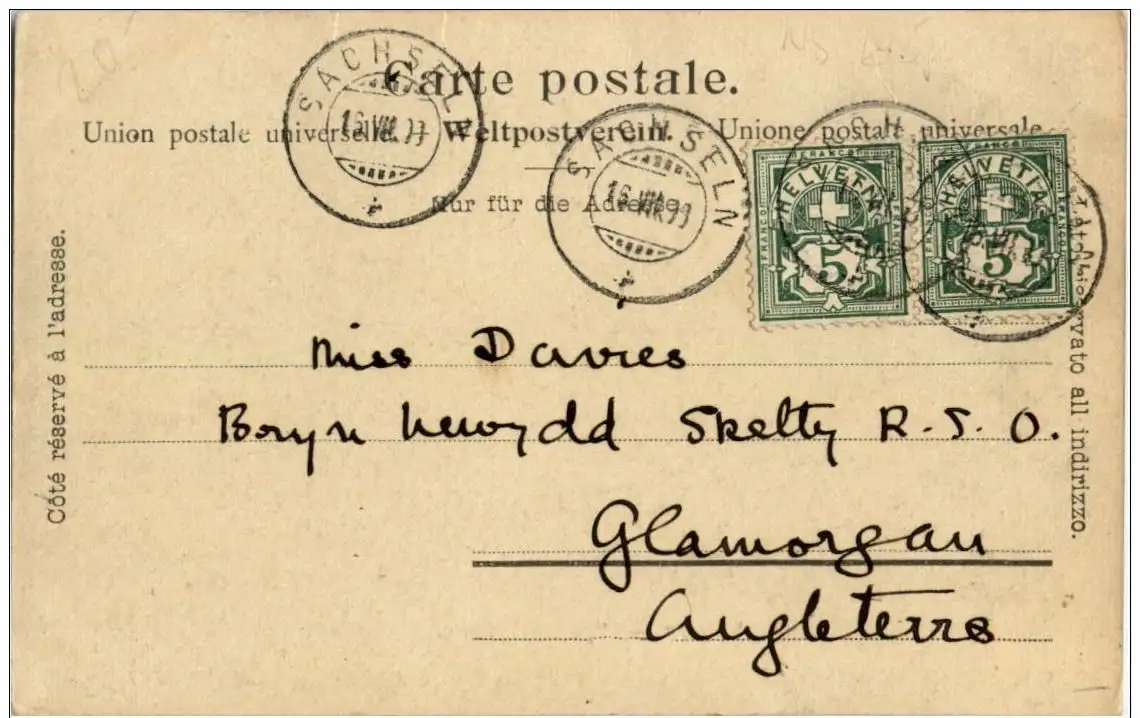 Carte postale.
Union postale universelle. — Weltpostverein. — Unione postale universale
Nur für die Adresse.
Côté réservé à l'adresse.
all' indirizzo.
SACHSELN
16.VII.
SACHSELN
16.VII.
FRANCO
HELVETIA
5
FRANCO
HELVETIA
5
Miss Davies
Bryn newydd Sketty R.S.O.
Glamorgan
Angleterre